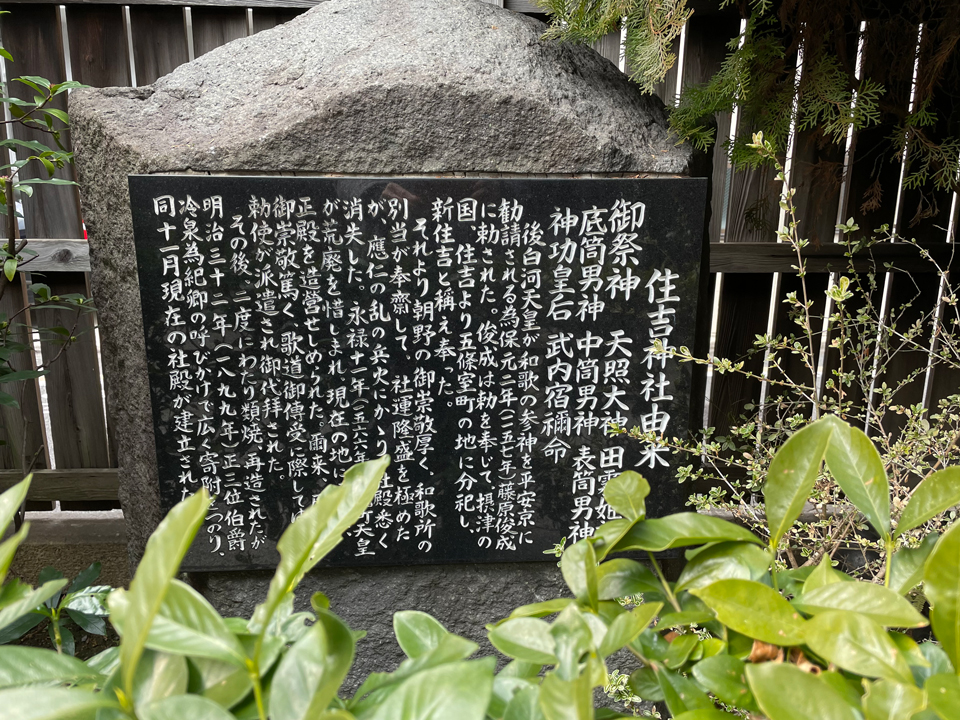 住吉神社由来
御祭神 天照大神 田霧姫
底筒男神 中筒男神 表筒男神
神功皇后 武内宿禰命
後白河天皇が和歌の参神を平安京に
勧請される為保元二年(一一五七年)藤原俊成
に勅された。俊成は勅を奉じて、摂津の
国、住吉より五條室町の地に分祀し、
新住吉と稱え奉った。
それより朝野の御崇敬厚く、和歌所の
別当が奉齋して、社運隆盛を極めた
が、應仁の乱の兵火にかゝり社殿悉く
消失した。永禄十一年(一五六八年)町天皇
が荒廃を惜しまれ現在の地に
正殿を造営せしめられた。爾来、
御崇敬篤く、歌道御傳受に際して
勅使が派遣され御代拝された。
その後、二度にわたり類焼、再造されたが
明治三十二年(一八九九年)正三位伯爵
冷泉為紀卿の呼びかけで広く寄附をつのり、
同十一月現在の社殿が建立された